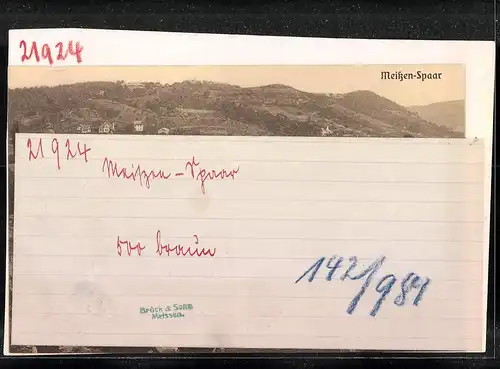 21924
Meißen-Spaar
21924
Meißen-Spaar
500 braun
142/984
Brück & Sohn
Meissen.